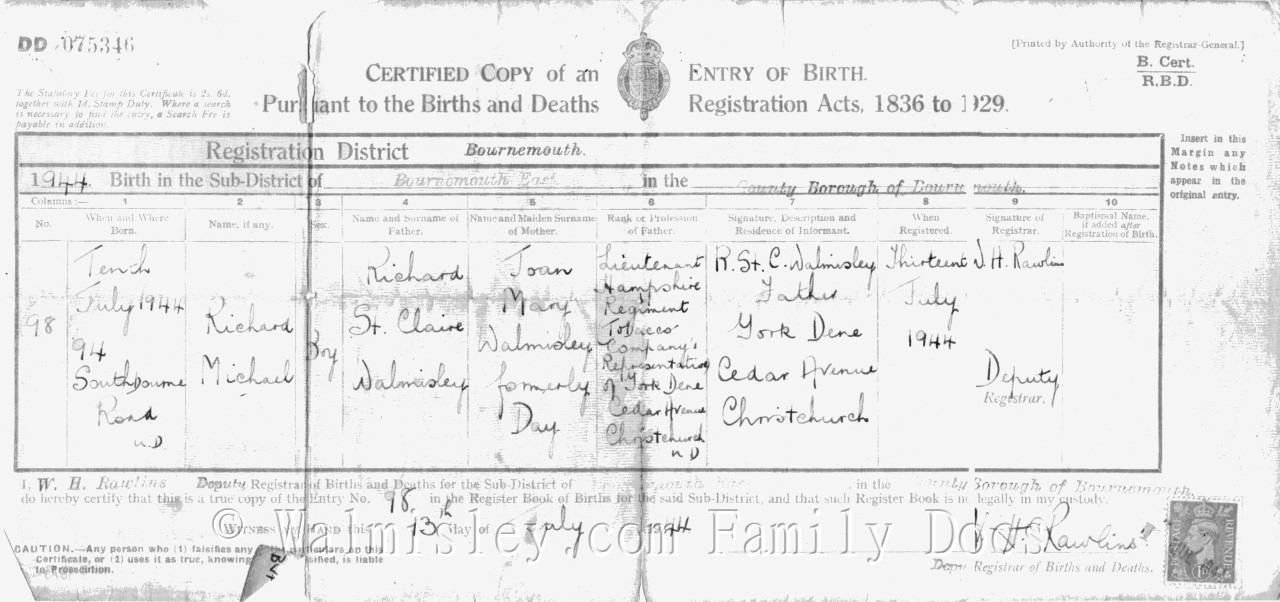 DD 075346
[Printed by Authority of the Registrar-General.]
B. Cert.
R.B.D.
The Statutory Fee for this Certificate is 2s. 6d.
together with 1d. Stamp Duty. Where a search
is necessary to find the entry, a Search Fee is
payable in addition.
CERTIFIED COPY of an ENTRY OF BIRTH.
Pursuant to the Births and Deaths Registration Acts, 1836 to 1929.
Registration District Bournemouth.
1944. Birth in the Sub-District of Bournemouth East in the County Borough of Bournemouth.
Insert in this
Margin any
Notes which
appear in the
original entry.
Columns :— 1 2 3 4 5 6 7 8 9 10
No.
When and Where
Born.
Name, if any.
Sex.
Name and Surname of
Father.
Name and Maiden Surname
of Mother.
Rank or Profession
of Father.
Signature, Description and
Residence of Informant.
When
Registered.
Signature of
Registrar.
Baptismal Name,
if added after
Registration of Birth.
98
Tenth
July 1944
94
Southbourne
Road
U.D
Richard
Michael
Boy
Richard
St. Claire
Walmisley
Joan
Mary
Walmisley
formerly
Day
Lieutenant
Hampshire
Regiment
Tobacco
Company's
Representative
of York Dene
Cedar Avenue
Christchurch
U D
R. St. C. Walmisley
Father
York Dene
Cedar Avenue
Christchurch
Thirteenth
July
1944
W. H. Rawlins
Deputy
Registrar.
I, W. H. Rawlins Deputy Registrar of Births and Deaths for the Sub-District of Bournemouth East, in the County Borough of Bournemouth
do hereby certify that this is a true copy of the Entry No. 98. in the Register Book of Births for the said Sub-District, and that such Register Book is now legally in my custody.
WITNESS MY HAND this 13th day of July 1944
W. H. Rawlins
Deputy Registrar of Births and Deaths.
CAUTION.—Any person who (1) falsifies any of the particulars on this
Certificate, or (2) uses it as true, knowing it to be falsified, is liable
to Prosecution.
POSTAGE REVENUE
© Walmisley.com Family Docs